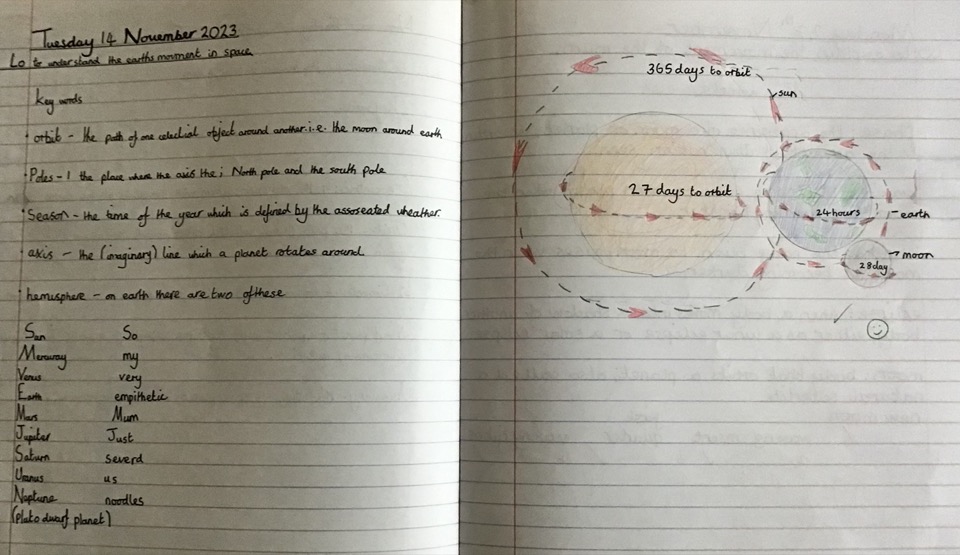 Tuesday 14 November 2023
Lo to understand the earths movment in space
Key words
orbit - the path of one celectial object around another i.e. the moon around earth
Poles - 1 the place where the axis the ; North pole and the south pole
Season - the time of the year which is defined by the assoseated wheather.
axis - the (imaginary) line which a planet rotates around.
hemisphere - on earth there are two of these
Sun So
Mercuray my
Venus very
Earth empithetic
Mars Mum
Jupiter Just
Saturn
Uranus us
Neptune noodles
(Pluto dwarf planet)
365 days to orbit
sun
27 days to orbit
24 hours
earth
moon
28 day